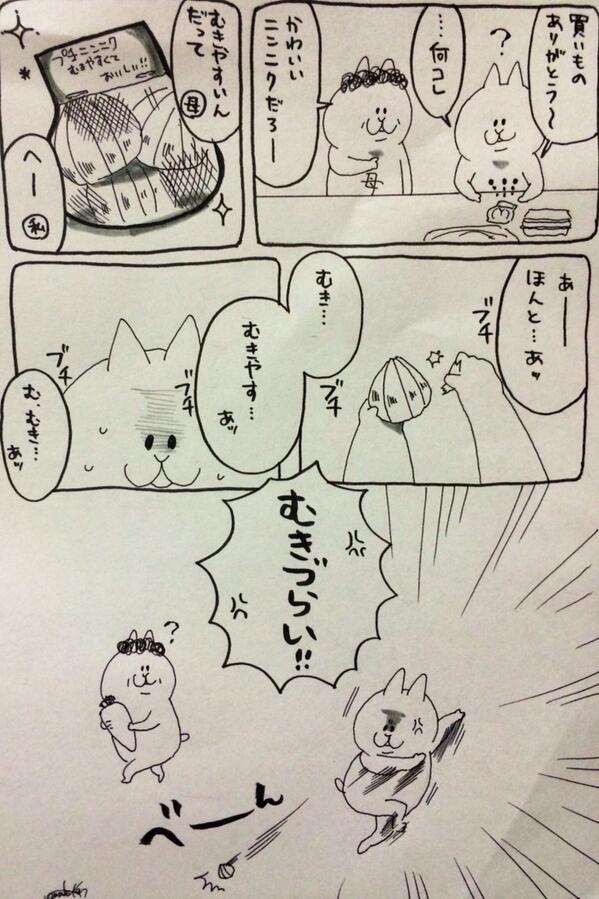 買いもの
ありがとう〜
?
…何コレ
かわいい
ニンニクだろー
母
むきやすいん
だって
母
プチニンニク
むきやすくて
おいしい!!
へー
私
あー
ほんと…あッ
ブチ
ブチ
むき…
むきやす…
あッ
ブチ
ブチ
む…むき…
あッ
むきづらい!!
?
べーん